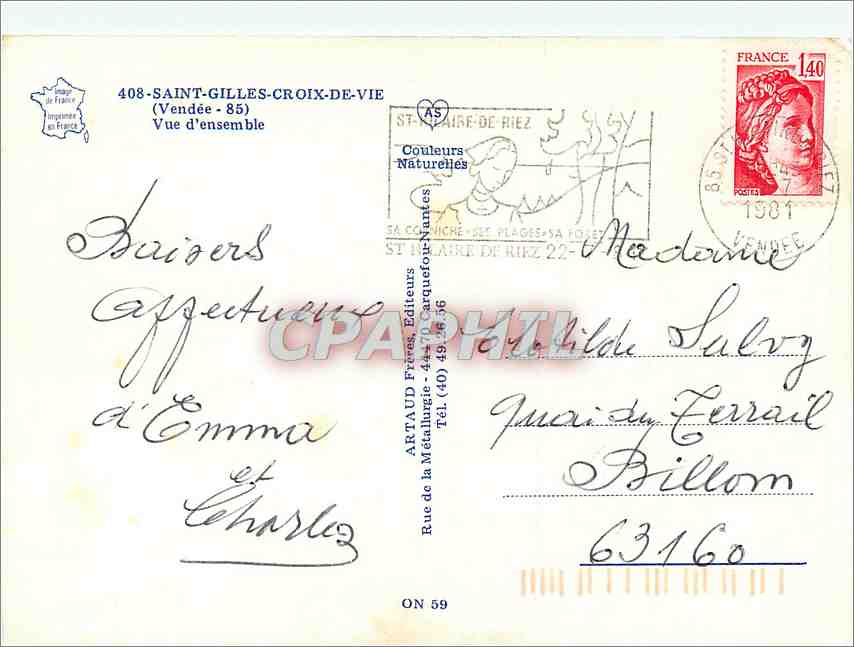 Image
de France
Imprimée
en France
408-SAINT-GILLES-CROIX-DE-VIE
(Vendée - 85)
Vue d'ensemble
AS
Couleurs
Naturelles
ST-HILAIRE-DE-RIEZ
SA CORNICHE-SES PLAGES-SA FORET
ST HILAIRE DE RIEZ 22-
FRANCE
1,40
POSTES
1981
VENDEE
Baisers
affectueux
d'Emma
et
Charles
ARTAUD Frères, Editeurs
Rue de la Métallurgie - 44470 Carquefou-Nantes
Tél. (40) 49.26.56
CPAPHIL
Madame
Clotilde Salvy
Quai du Terrail
Billom
63160
ON 59